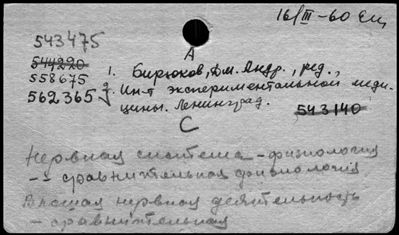 16/III-60 Ещ
543475
A
544220
558675
562365
1. Бирюков, Дм. Андр., ред.,
2. Ин-т экспериментальной меди-
цины. Ленинград.
543140
C
Нервная система - физиология
- сравнительная физиология
Высшая нервная деятельность
- сравнительная